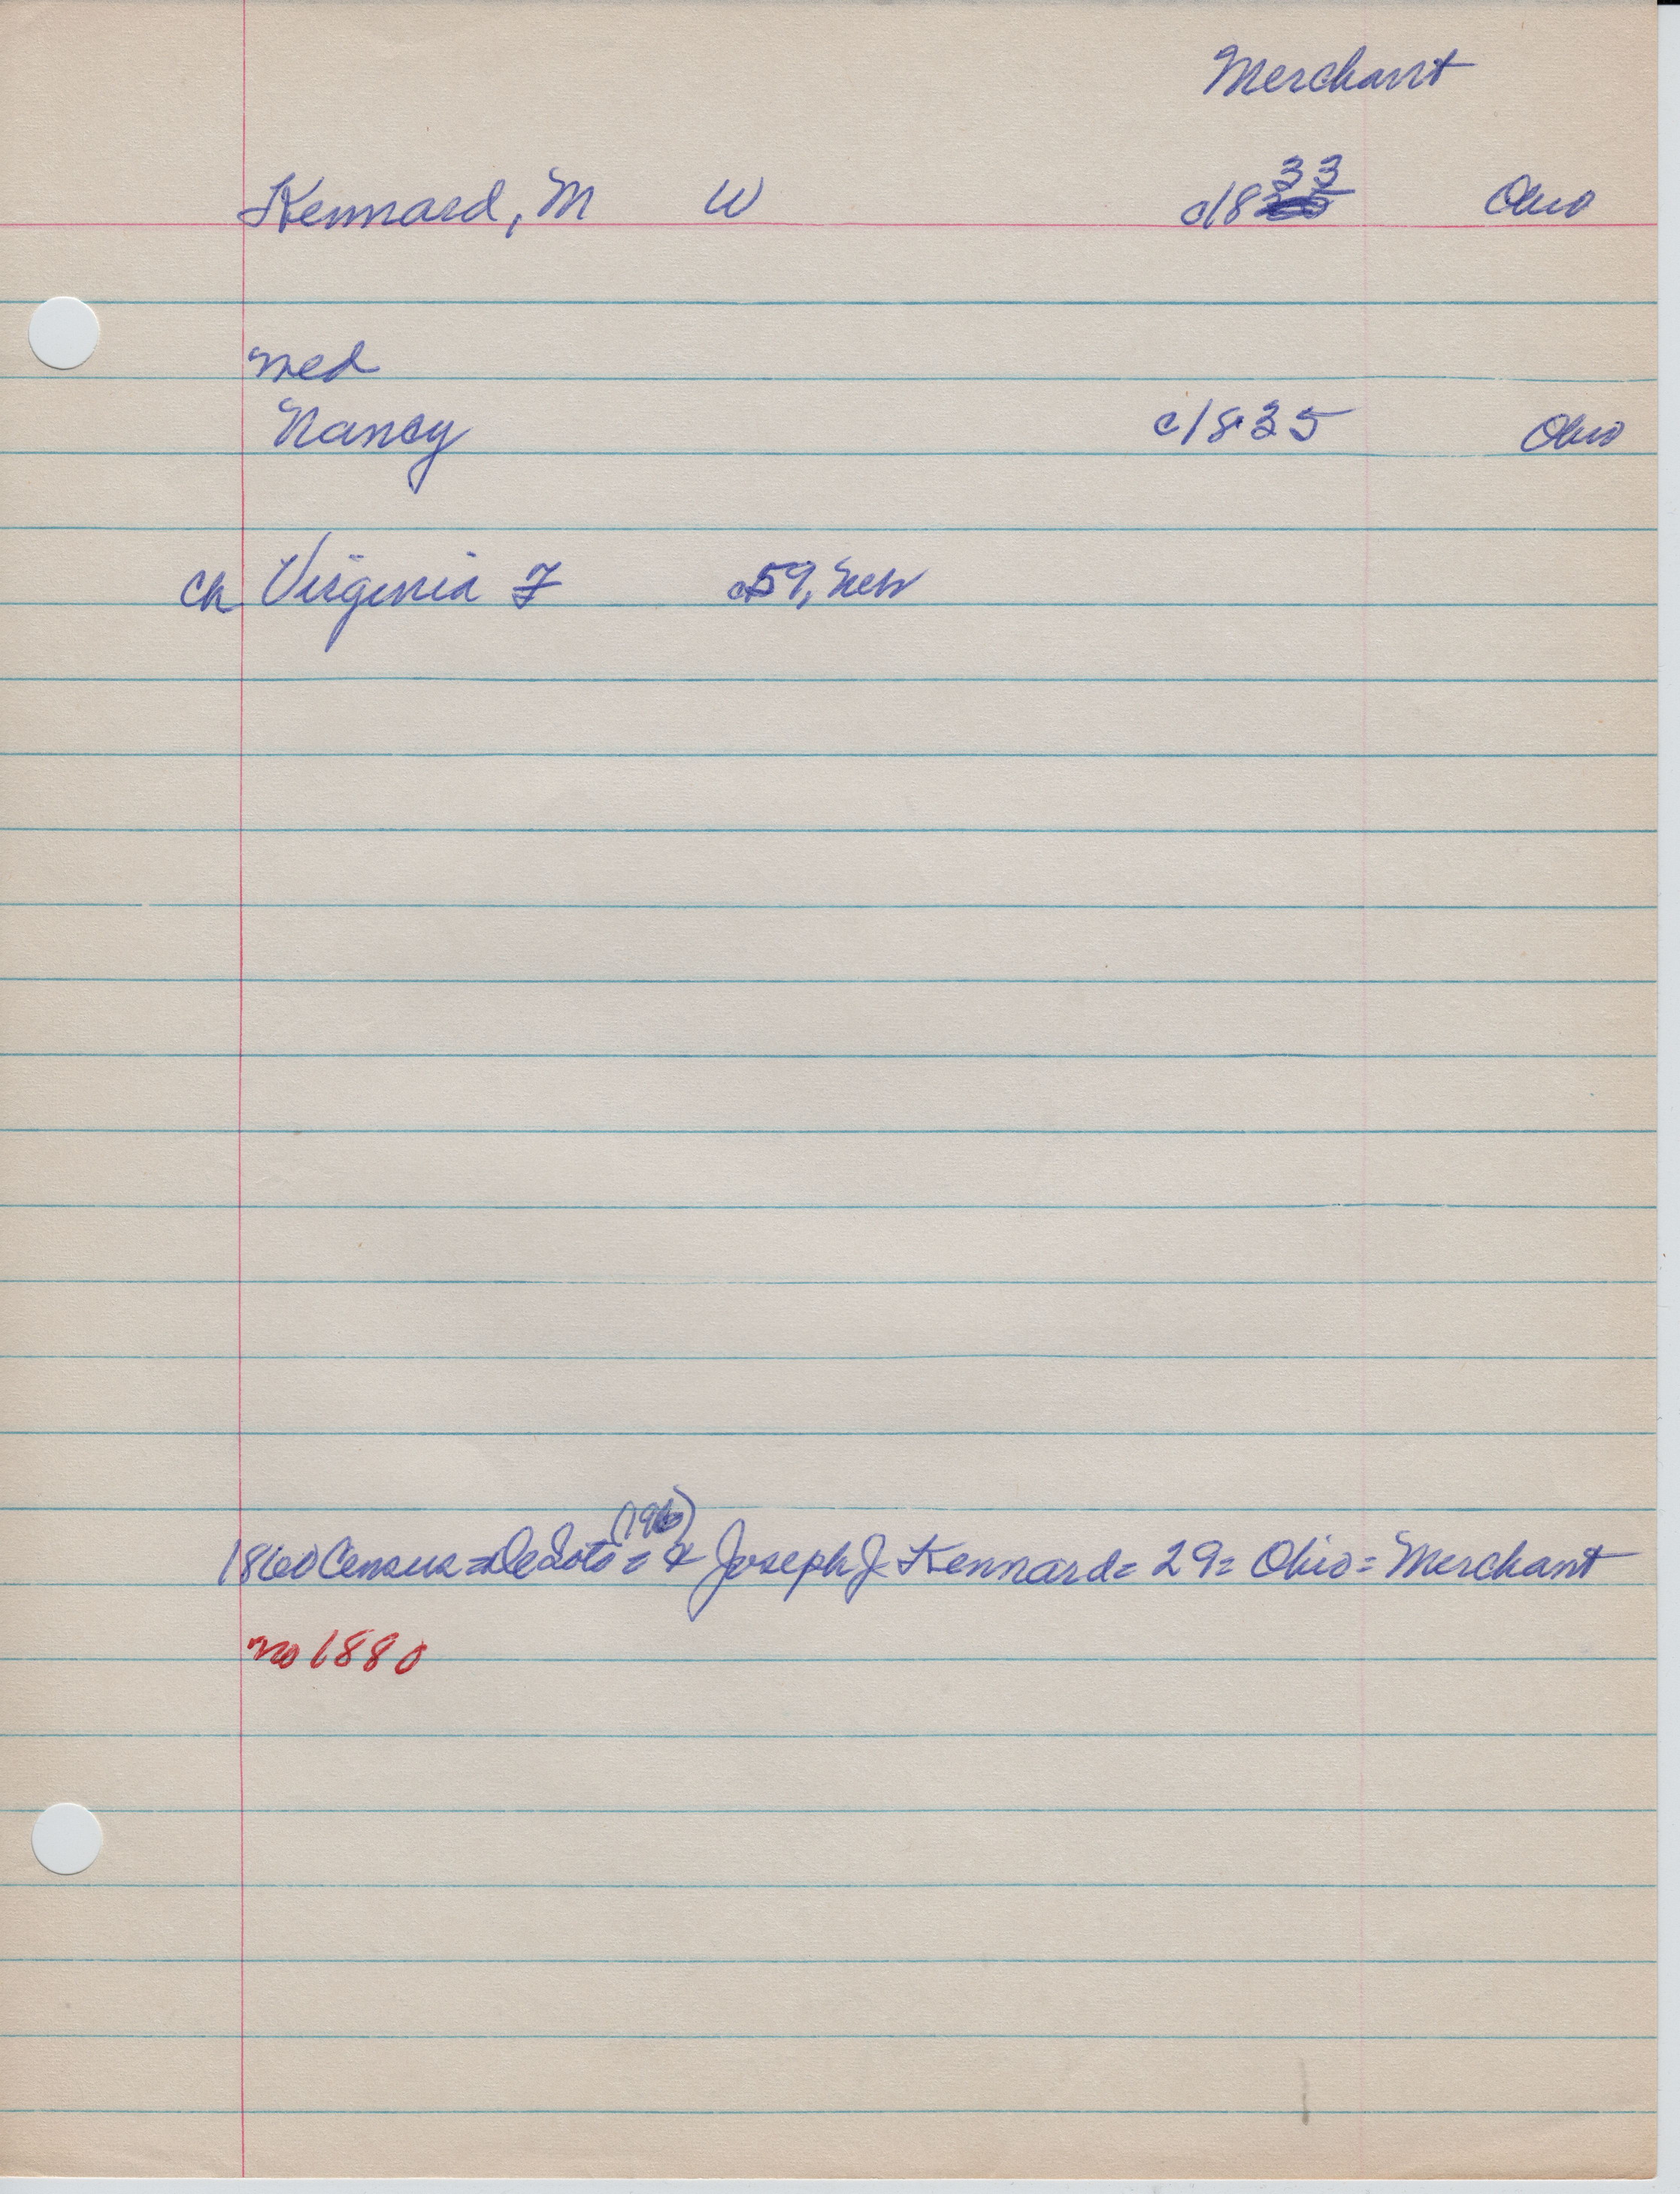 Merchant
33
Kennard, M W c18 Ohio
med
Nancy c1835 Ohio
ch Virginia F c59, Neb
(196)
1860 Census = DeSoto = & Joseph J. Kennard = 29 = Ohio = Merchant
no 1880